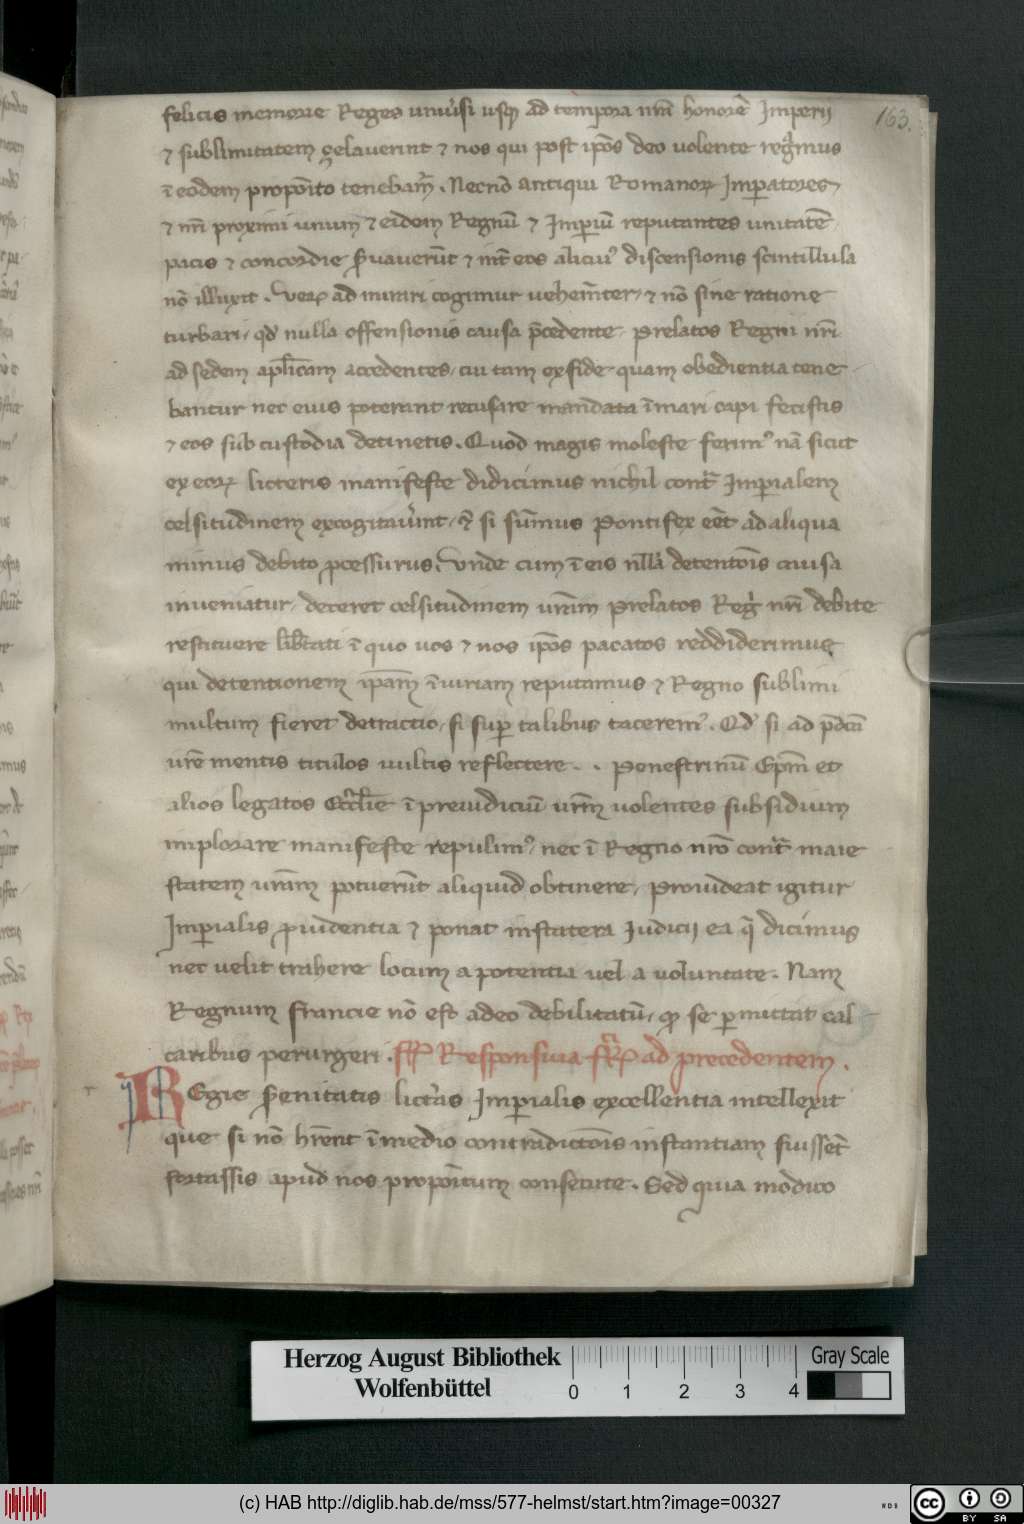 felicis memorie Reges uniūsi usq ad tempora nr̄i honorē Imperij
163.
⁊ sublimitatem ꝯzelaverint ⁊ nos qui post ip̄os deo volente regͣmus
ī eodem propoīto tenebam̄. Necnō antiqui Romanoꝝ Imꝑatores
⁊ nr̄i proximi unum ⁊ eidem Regnū ⁊ Imꝑiū reputantes unitatē
pacis ⁊ concordie s̄vaverūt ⁊ int̄ eos aliciuꝰ discensionis scintillula
nō illuxit. Veꝝ ad mirari cogimur vehem̄ter, ⁊ nō sine ratione
turbari, qd̄ nulla offensionis causa p̄cedente, prelatos Regni nr̄i
ad sedem apl̄icam accedentes, cui tam ex fide quam obedientia tene
bantur nec eius poterant recusare mandata ī mari capi fecistis
⁊ eos sub custodia detinetis. Quod magis moleste ferimꝰ nā sicut
ex eoꝝ licteris manifeste didicimus nichil contͣ Imꝑialem
celsitudinem excogitav̄int, si sūmus Pontifex eēt ad aliqua
minus debito ꝓcessurus, Unde cum ī eis nll̄a detentoīs causa
inveniatur, deceret celsitudinem vr̄am prelatos Reḡ nr̄i debite
restituere lib̄tati ī quo vos ⁊ nos ip̄os pacatos reddiderimus
qui detentionem ip̄am īiuriam reputamus ⁊ Regno sublimi
multum fieret detractio, si suꝑ talibus taceremꝰ. Qd̄ si ad p̄dc̄ā
vr̄e mentis titulos vultis reflectere.. Penestrinū Ep̄m et
alios legatos Eccl̄ie ī preiudiciū vr̄m volentes subsidium
implorare manifeste repulimꝰ, nec ī Regno nr̄o contͣ maie
statem vr̄am potuerūt aliquid obtinere, Provideat igitur
Imꝑialis ꝓvidentia ⁊ ponat in statera Judicij ea q̄ dicimus
nec velit trahere locum a potentia vel a voluntate. Nam
Regnum francie nō est adeo debilitatū, ꝙ se ꝑmictat cal
caribus perurgeri. Responsiva ad precedentem.
REgie s̄enitatis lictͣas Imꝑialis excellentia intellexit
que si nō hr̄ent ī medio contradictoīs instantiam fuisset̄
fortassis apud nos propoītum consecute. Sed quia modico
Herzog August Bibliothek
Wolfenbüttel
0 1 2 3 4
Gray Scale
(c) HAB http://diglib.hab.de/mss/577-helmst/start.htm?image=00327
WDB
cc BY SA